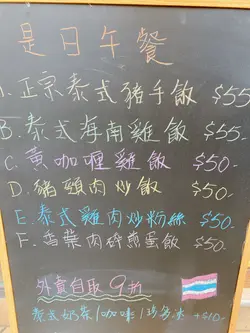 是日午餐
A. 正宗泰式豬手飯 $55
B. 泰式海南雞飯 $55-
C. 黃咖喱雞飯 $50-
D. 豬頸肉炒飯 $50-
E. 泰式雞肉炒粉絲 $50-
F. 香葉肉碎煎蛋飯 $50-
外賣自取 9折
泰式奶茶/咖啡/ +$10-